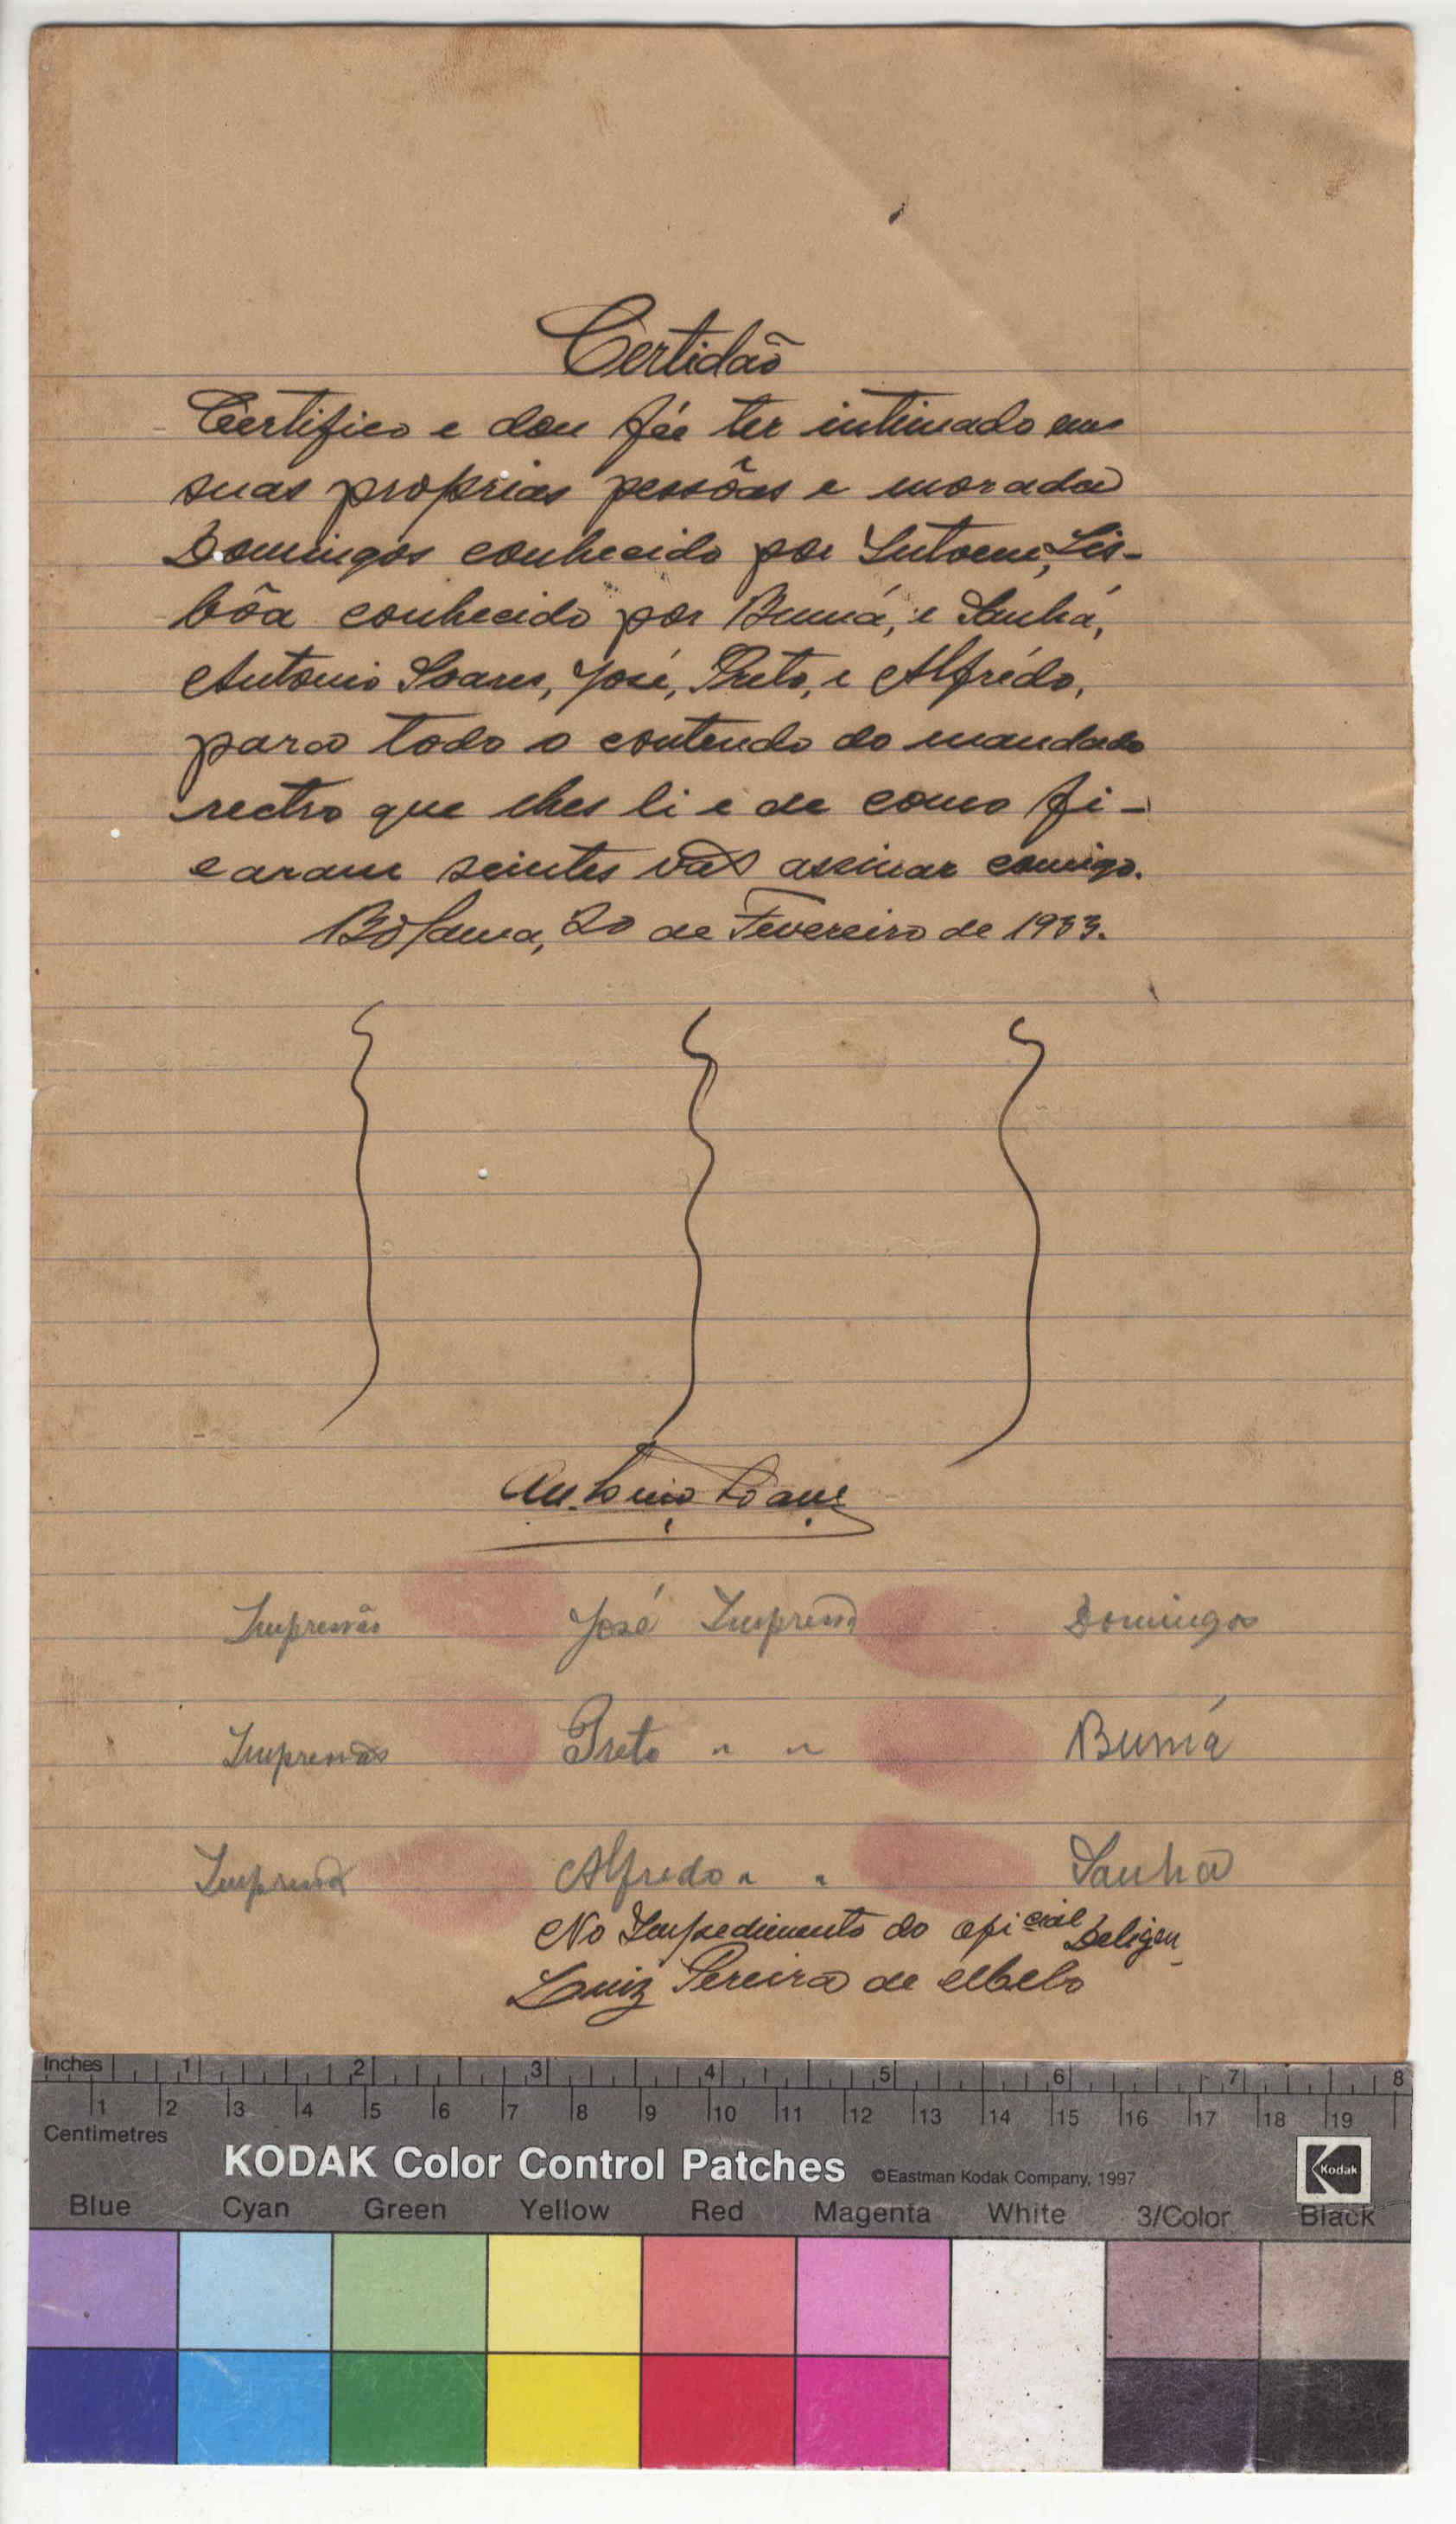 Certidão
Certifico e dou fée ter intimado em
suas proprias pessôas e morada
Domingos conhecido por Lis-
bôa conhecido por Bumá, e Sanhá,
Antonio Soares, José, Preto, e Alfrédo,
para todo o contendo do mandado
rectro que lhes li e de como fi-
caram scintes vão assinar comigo.
Bolama, 20 de Fevereiro de 1933.
Antonio Soares
Impressão José Impressão Domingos
Impressão Preto " " Bumá
Impressão Alfredo " " Sanha
No Impedimento do oficial Deligen
Luiz Pereira de Melo
Inches 1 2 3 4 5 6 7 8
1 2 3 4 5 6 7 8 9 10 11 12 13 14 15 16 17 18 19
Centimetres
KODAK Color Control Patches ©Eastman Kodak Company, 1997 Kodak
Blue Cyan Green Yellow Red Magenta White 3/Color Black